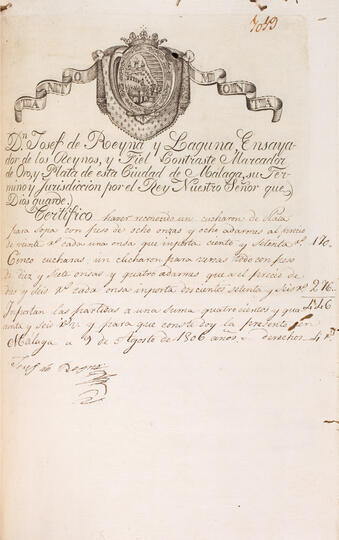 1019
TANTO MONTA
Dn. Josef de Reyna y Laguna, Ensaya-
dor de los Reynos, y Fiel Contraste Marcador
de Oro, y Plata de esta Ciudad de Malaga, su Ter-
mino y Jurisdiccion por el Rey Nuestro Señor que
Dios guarde.
Certifico haver reconocido un cucharon de Plata
para Sopa con peso de ocho onzas y ocho adarmes al precio
de veinte rs. cada una onsa que importa ciento y setenta rs. 170.
Cinco cucharas un todo con peso
de diez y siete onsas y quatro adarmes que a el precio de
diez y seis rs. cada onsa importa doscientos setenta y seis rs. 276.
Inportan las partidas a una suma quatrocientos y qua 446
renta y seis rs. vn. y para que conste doy la presente en
Malaga a 9 de Agosto de 1806 años. derechos 4 rs.
Josef de Reyna